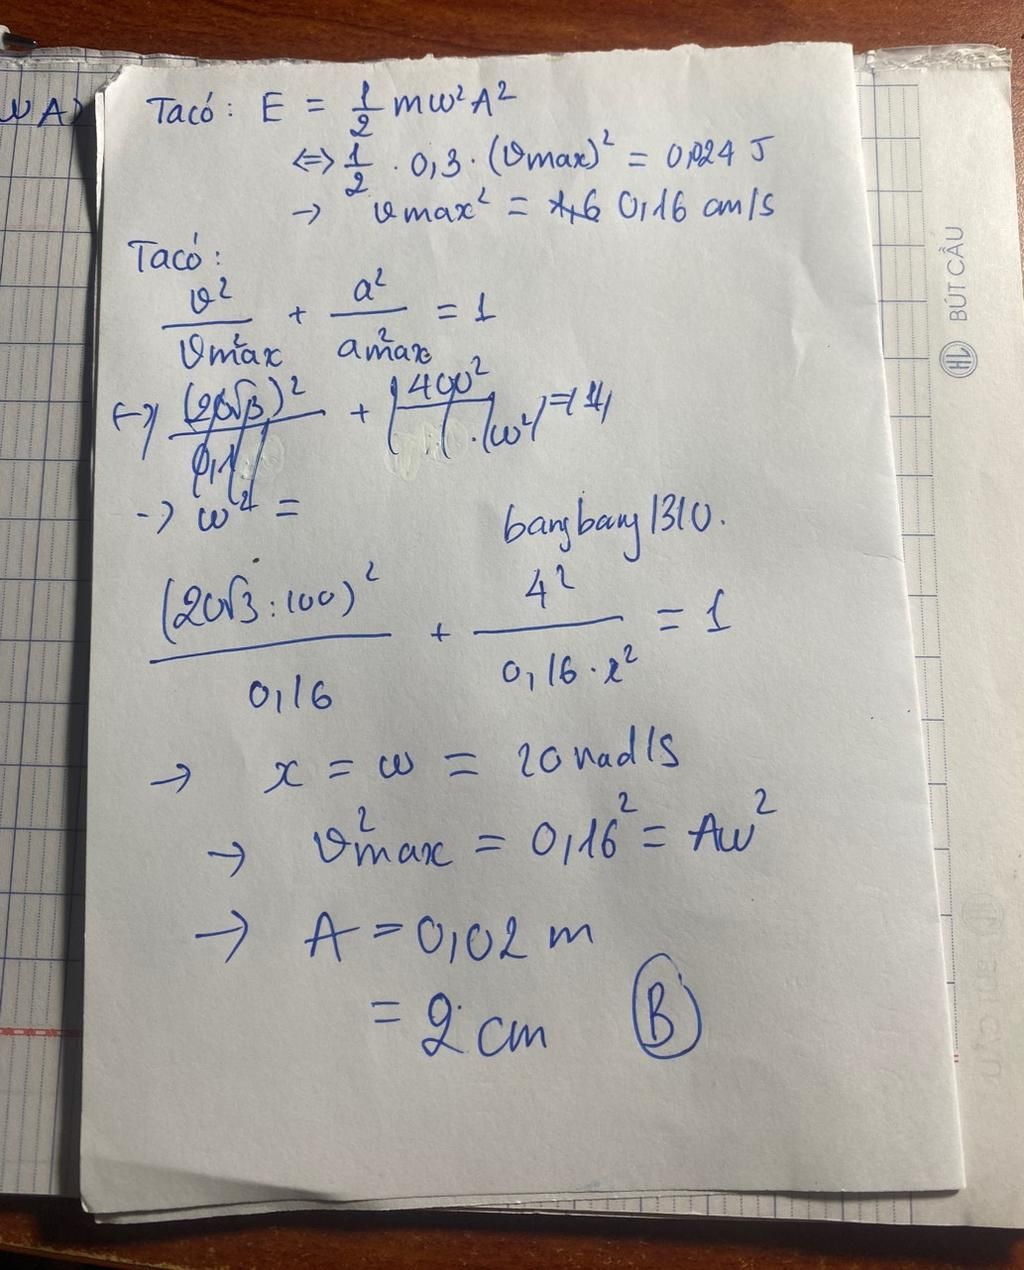 ωA)
Ta có: E = 1/2 mω²A²
<=> 1/2 . 0,3 . (vmax)² = 0,024 J
-> vmax² = 1,6 0,16 cm/s
Ta có:
v²/v²max + a²/a²max = 1
(20√3)² + 400²
-> ω² =
bangbang1310.
(20√3:100)²/0,16 + 4²/(0,16.x²) = 1
-> x = ω = 20 rad/s
-> v²max = 0,16² = Aω²
-> A = 0,02 m
= 2 cm B
BÚT CẦU